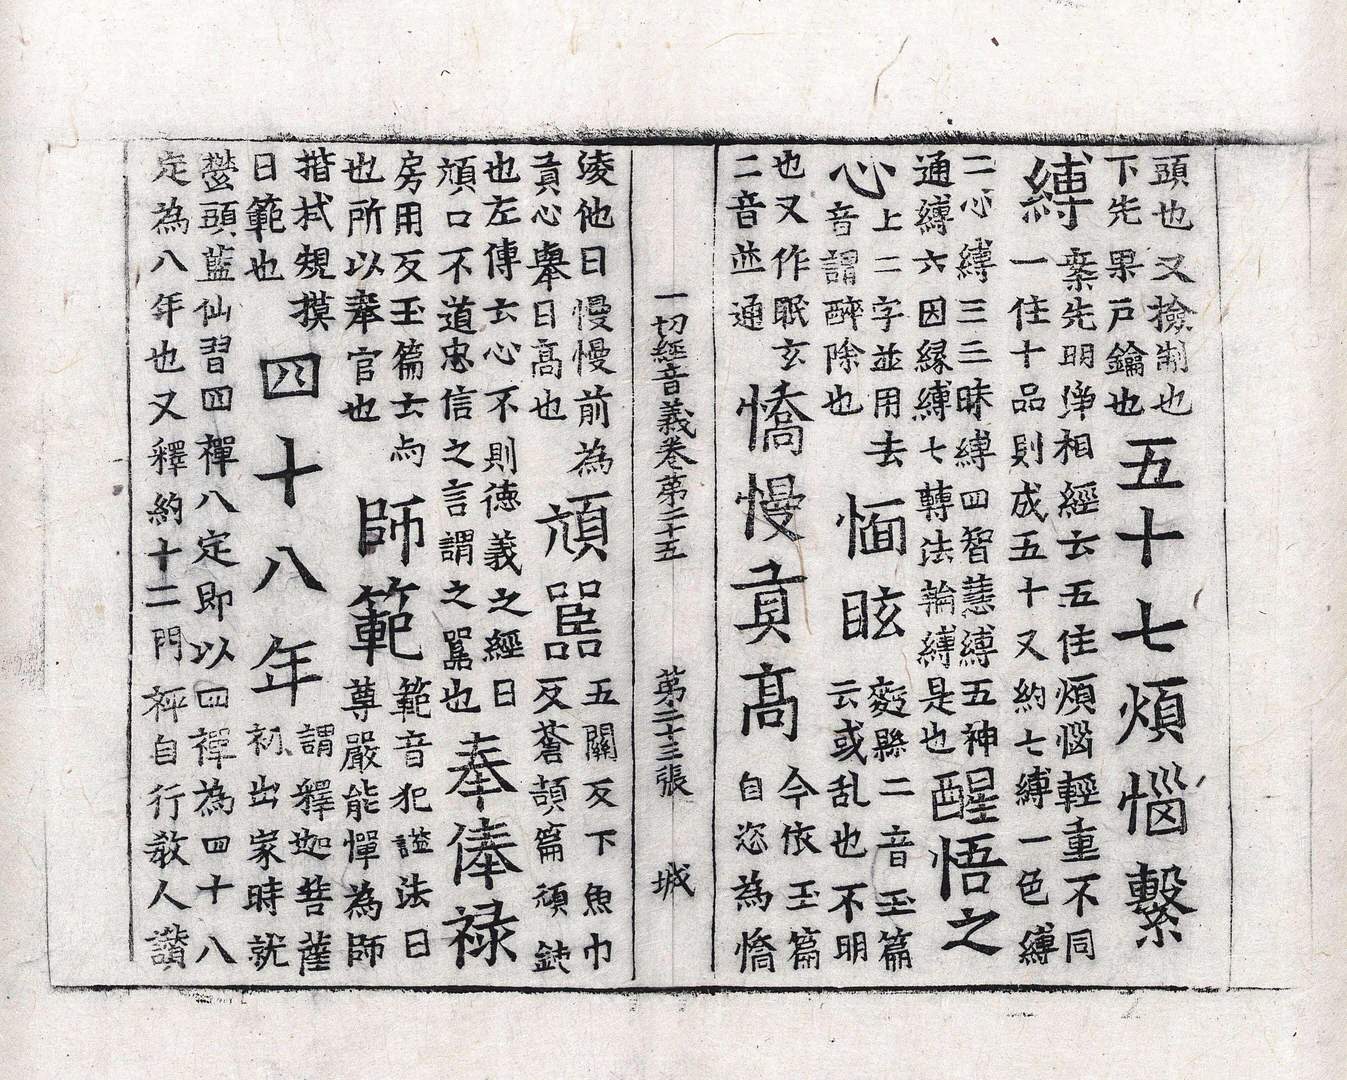 頭也又撿制也下先果戸鑰也五十七煩惱繫
縛案先明淨相經云五住煩惱輕重不同一住十品則成五十又約七縛一色縛
二心縛三三昧縛四智慧縛五神通縛六因縁縛七轉法輪縛是也醒悟之
心上二字並用去音謂醉除也愐眩麪縣二音玉篇云或乱也不明
也又作眠玄二音並通憍慢貢高今依玉篇自恣為憍
一切經音義卷第二十五 第二十三張 城
淩他曰慢慢前為貢心舉曰高也頑嚚五關反下魚巾反蒼頡篇頑鈍
也左傳云心不則德義之經曰頑口不道忠信之言謂之嚚也奉俸祿
房用反玉篇云与也所以奉官也師範範音犯謚法曰尊嚴能憚為師
揩拭規摸曰範也四十八年謂釋迦菩薩初出家時就
鬱頭藍仙習四禪八定即以四禪為四十八定為八年也又釋約十二門禪自行教人讚